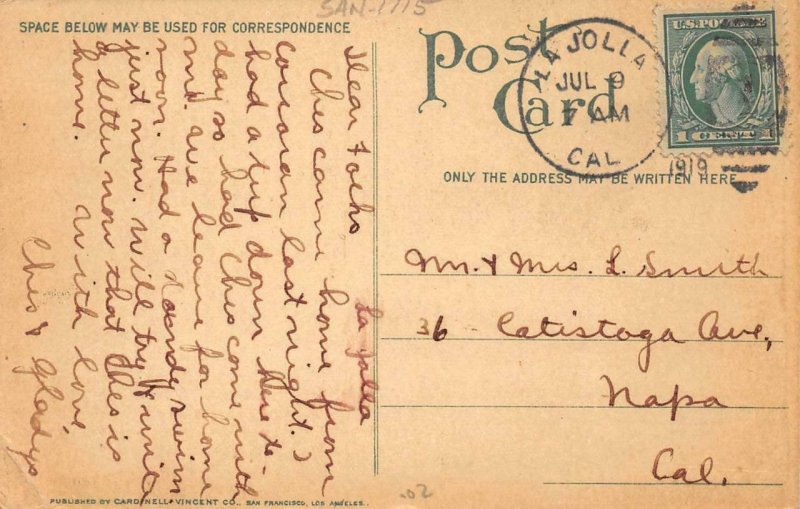 SAN-1715
SPACE BELOW MAY BE USED FOR CORRESPONDENCE
Post
Card
LA JOLLA
JUL 9
7 AM
CAL
1919
U.S. POSTAGE
1 CENT 1
ONLY THE ADDRESS MAY BE WRITTEN HERE
La Jolla
Dear Folks
Ches came home from
Corcoran last night. I
had a trip down here to-
day so had Ches come with
me. We leave for home
noon. Had a dandy swim
just now. Will try & write
a letter now that Ches is
home.
With love
Ches & Gladys
Mr. & Mrs. L. Smith
36 - Catistoga Ave,
Napa
Cal.
.02
PUBLISHED BY CARDINELL-VINCENT CO., SAN FRANCISCO, LOS ANGELES.